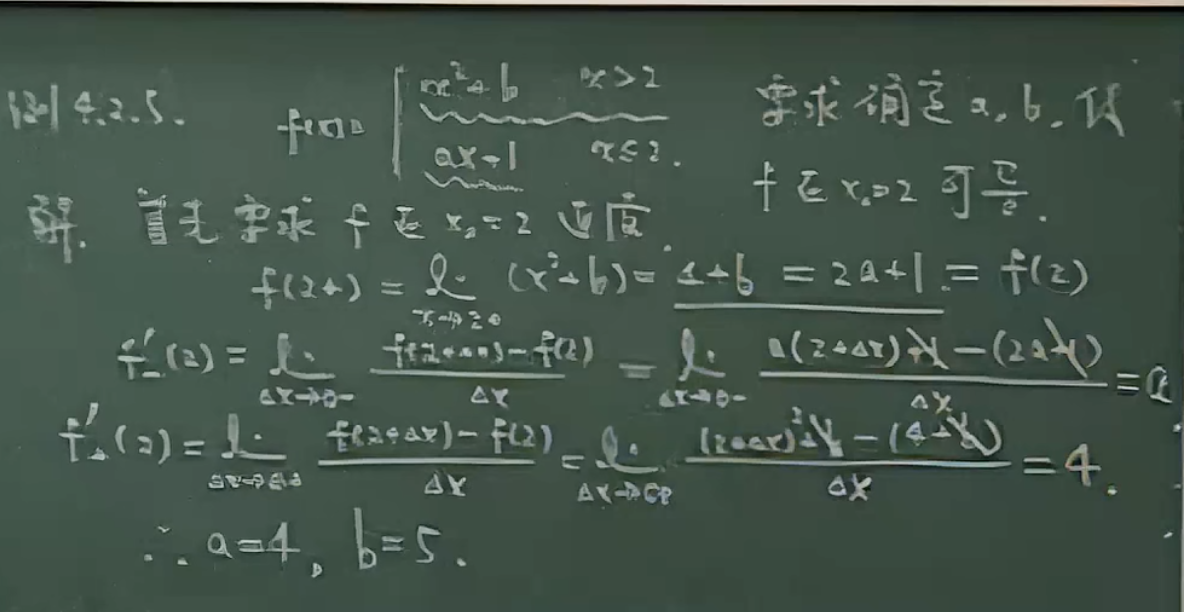 例4.2.5. f(x)= { x²+b x>2 要求确定a,b,使
ax+1 x≤2. f在x₀=2可导.
解. 首先要求f在x₀=2连续.
f(2+) = lim_{x→2+} (x²+b) = 4+b = 2a+1 = f(2)
f'₋(2) = lim_{Δx→0-} (f(2+Δx)-f(2))/Δx = lim_{Δx→0-} (a(2+Δx)+1-(2a+1))/Δx = a
f'₊(2) = lim_{Δx→0+} (f(2+Δx)-f(2))/Δx = lim_{Δx→0+} ((2+Δx)²+b-(4+b))/Δx = 4.
∴ a=4, b=5.